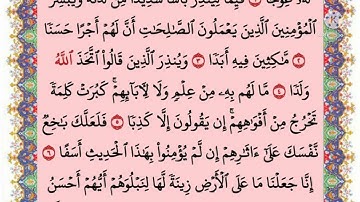 لَّهُۥ عِوَجَا ۜ ١ قَيِّمٗا لِّيُنذِرَ بَأۡسٗا شَدِيدٗا مِّن لَّدُنۡهُ وَيُبَشِّرَ
ٱلۡمُؤۡمِنِينَ ٱلَّذِينَ يَعۡمَلُونَ ٱلصَّٰلِحَٰتِ أَنَّ لَهُمۡ أَجۡرًا حَسَنٗا
٢ مَّٰكِثِينَ فِيهِ أَبَدٗا ٣ وَيُنذِرَ ٱلَّذِينَ قَالُواْ ٱتَّخَذَ ٱللَّهُ
وَلَدٗا ٤ مَّا لَهُم بِهِۦ مِنۡ عِلۡمٖ وَلَا لِأٓبَآئِهِمۡۚ كَبُرَتۡ كَلِمَةٗ
تَخۡرُجُ مِنۡ أَفۡوَٰهِهِمۡۚ إِن يَقُولُونَ إِلَّا كَذِبٗا ٥ فَلَعَلَّكَ بَٰخِعٞ
نَّفۡسَكَ عَلَىٰٓ ءَاثَٰرِهِمۡ إِن لَّمۡ يُؤۡمِنُواْ بِهَٰذَا ٱلۡحَدِيثِ أَسَفًا ٦
إِنَّا جَعَلۡنَا مَا عَلَى ٱلۡأَرۡضِ زِينَةٗ لَّهَا لِنَبۡلُوَهُمۡ أَيُّهُمۡ أَحۡسَنُ